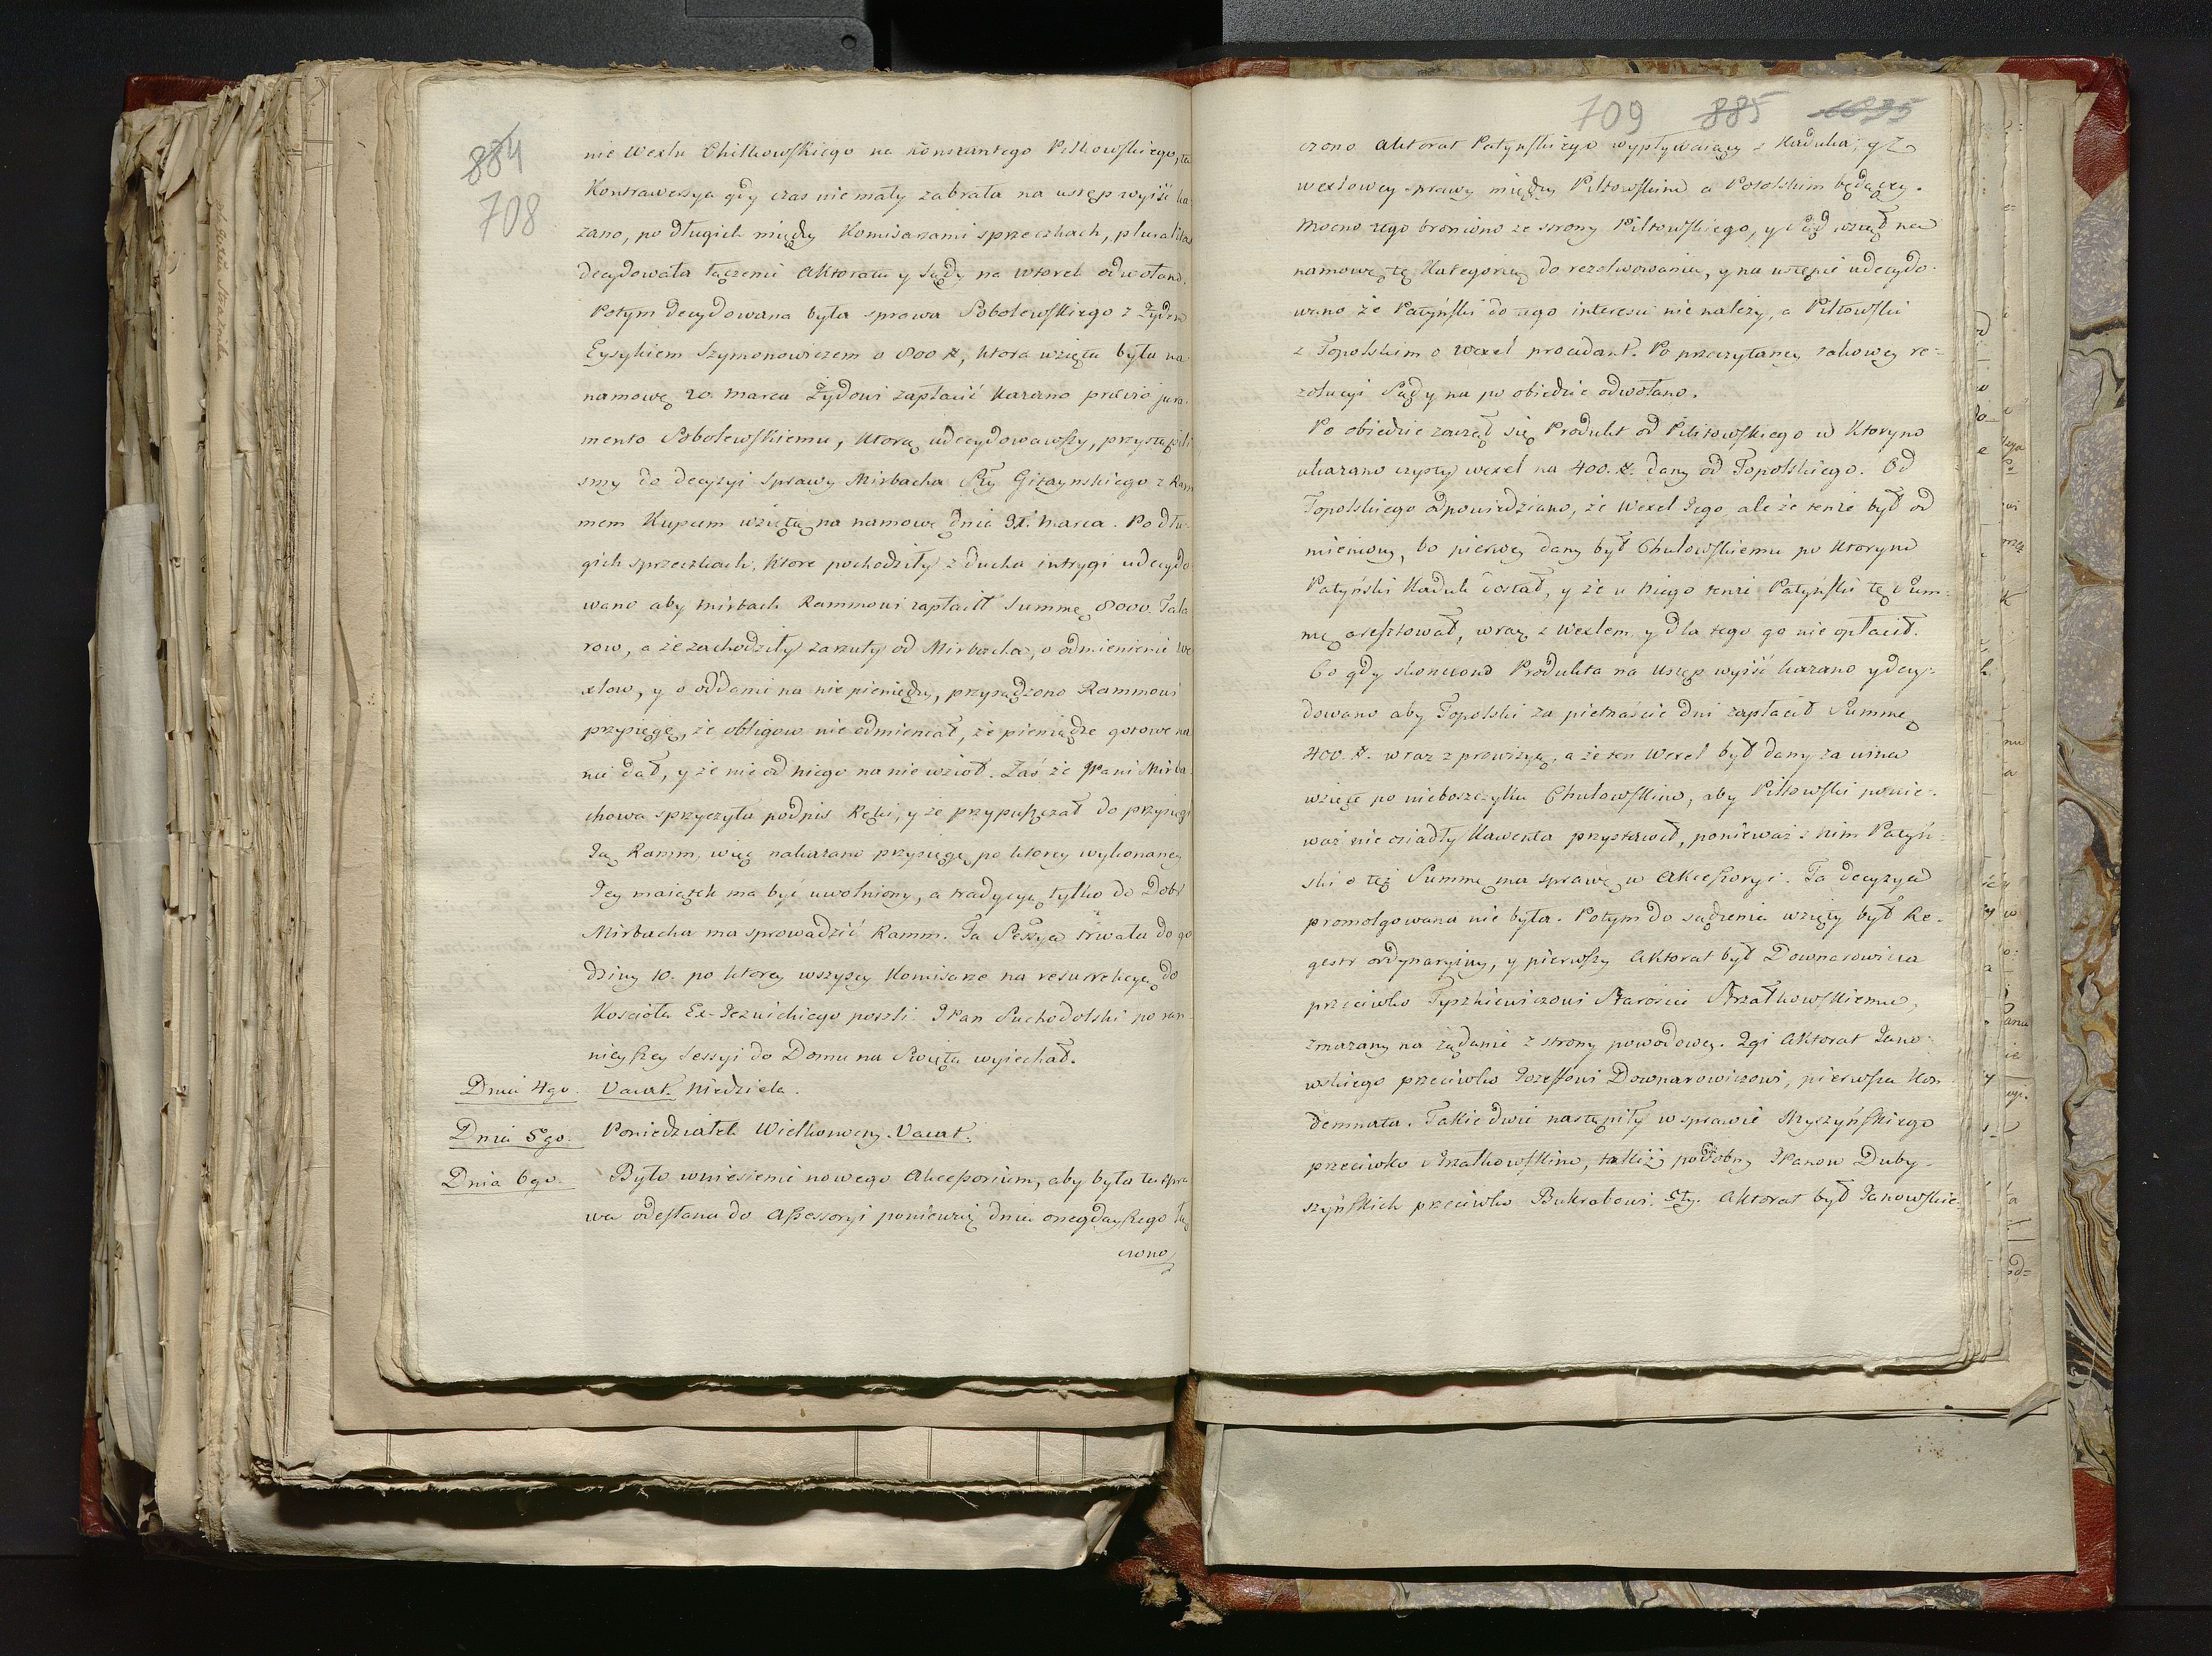 884
708
nie Wexlu Chitkowskiego na Konstantego Piłkowskiego, ta
Kontrawersya gdy czas nie mały zabrała na ustęp wyiść ka-
zano, po długich między Komisarzami sprzeczkach, pluralitas
decydowała łączenie Aktoratu y Sądy na wtorek odwołano.
Potym decydowana była sprawa Sobolewskiego z Żydem
Eysykiem Szymonowiczem o 800 #, ktora wzięta była na
namowę 20. marca Żydowi zapłacić kazano prævio jura-
mento Sobolewskiemu, ktorą udecydowawszy, przystąpili
smy do decyzyi Sprawy Mirbacha Sty Giżaynskiego z Ram
mem Kupcem wziętą na namowę dnia 31. Marca. Po dłu-
gich sprzeczkach, ktore pochodziły z ducha intrygi udecydo
wano aby Mirbach Rammowi zapłacił Summę 8000. Tala
row, a że zachodziły zarzuty od Mirbacha, o odmienienie We
xlow, y o oddanie na nie pieniędzy, przysądzono Rammowi
przysięgę, że obligow nie odmieniał, że pieniądze gotowe na
nie dał, y że nie od niego na nie wziął. Zaś że JPani Mirba
chowa sprzyczyła podpis Ręki, y że przypuszczał do przysięgi
Ją Ramm, więc nakazano przysięgę po ktorey wykonaney
Jey maiątek ma być uwolniony, a tradycyę tylko do Dobr
Mirbacha ma sprowadzić Ramm. Ta Sessya trwała do go
dziny 10. po ktorey wszyscy Komisarze na resurrekcyę do
Kościoła Ex-Jezuickiego poszli. JPan Suchodolski po ran-
nieyszey Sessyi do Domu na Swięta wyiechał.
Dnia 4go. Vacat. Niedziela.
Dnia 5go. Poniedziałek Wielkonocny. Vacat.
Dnia 6go. Było wniesienie nowego Akcessorium, aby była ta Spra
wa odesłana do Assessoryi ponieważ dnia onegdayszego łą
czono
709 885
czono Aktorat Patynskiego wypływaiący z Kaduka, y z
wexlowey sprawy między Piłkowskim a Potolskim będącey.
Mocno tego broniono ze strony Piłkowskiego, y Sąd wziął na
namowę tę Kategoryą do rezolwowania, y na ustępie udecydo-
wano że Patyński do tego interesu nie należy, a Piłkowski
z Topolskim o Wexel procedant. Po przeczytaney takowey re-
zolucyi Sądy na po obiedzie odwołano.
Po obiedzie zaczął się Produkt od Piłkowskiego w ktorym
ukazano czysty wexel na 400. #. dany od Topolskiego. Od
Topolskiego odpowiedziano, że Wexel Jego, ale że tenże był od
mieniony, bo pierwey dany był Chutowskiemu po ktorym
Patyński Kaduk dostał, y że u niego tenże Patyński tę Sum-
mę aresztował, wraz z Wexlem, y dla tego go nie opłacił.
Co gdy skonczono Produkta na ustęp wyiść kazano y decy-
dowano aby Topolski za pietnaście dni zapłacił Summę
400. #. wraz z prowizyą, a że ten Wexel był dany za wina
wzięte po nieboszczyku Chutowskim, aby Piłkowski ponie-
waż nie osiadły Kawenta przystawił, ponieważ z nim Patyń-
ski o tęż Summę ma sprawę w Akcessoryi. Ta decyzya
promolgowana nie była. Potym do sądzenia wzięty był Re-
gestr ordynaryiny, y pierwszy Aktorat był Downarowicza
przeciwko Tyszkiewiczowi Staroscie Strzałkowskiemu,
zmazany na żądanie z strony powodowey. 2gi Aktorat Jano
wskiego przeciwko Jozeffowi Downarowiczowi, pierwsza Kon-
demnata. Takie dwie nastąpiły w sprawie Skyszyńskiego
przeciwko Strzałkowskim, także podobny JPanow Duby-
szyńskich przeciwko Bukrabowi. 5ty. Aktorat był Janowskie-